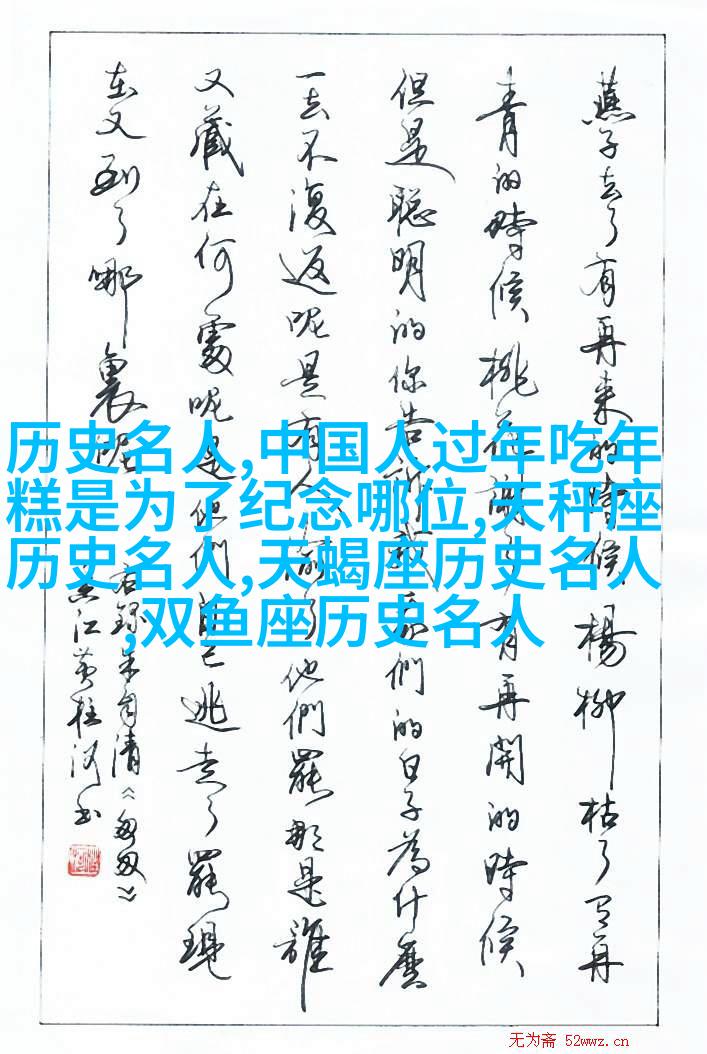 燕子去了有再来的時候楊柳枯了有再
青的時候桃花謝了有再開的時候
但是聪明的你告訴我我們的日子為什麼
一去不復返呢是有人偷了他們罷那是誰
又藏在何處呢是他們自己逃走了罷現
在又到了哪裏呢
右録朱自清《匆匆》
江黄柱河书
历史名人,中国人过年吃年
糕是为了纪念哪位,天秤座
历史名人,天蝎座历史名人
,双鱼座历史名人
无为斋 52wwz.cn